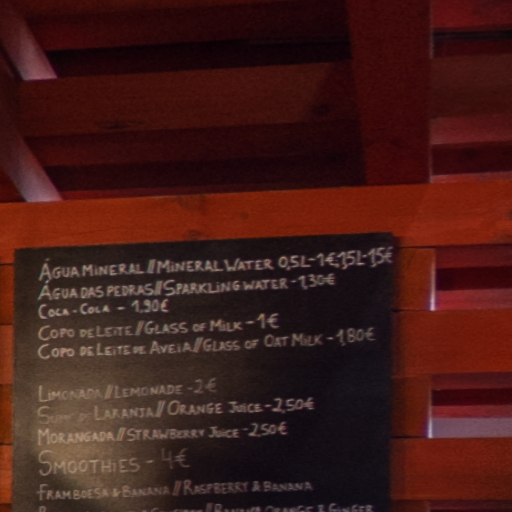 ÁGUA MINERAL // MINERAL WATER 0,5L-1€ 1,5L-1,5€
ÁGUA DAS PEDRAS // SPARKLING WATER - 1,30€
COCA-COLA - 1,90€
COPO DE LEITE // GLASS OF MILK - 1€
COPO DE LEITE DE AVEIA // GLASS OF OAT MILK - 1,80€
LIMONADA // LEMONADE - 2€
SUMO DE LARANJA // ORANGE JUICE - 2,50€
MORANGADA // STRAWBERRY JUICE - 2,50€
SMOOTHIES - 4€
FRAMBOESA & BANANA // RASPBERRY & BANANA
ORANGE & GINGER